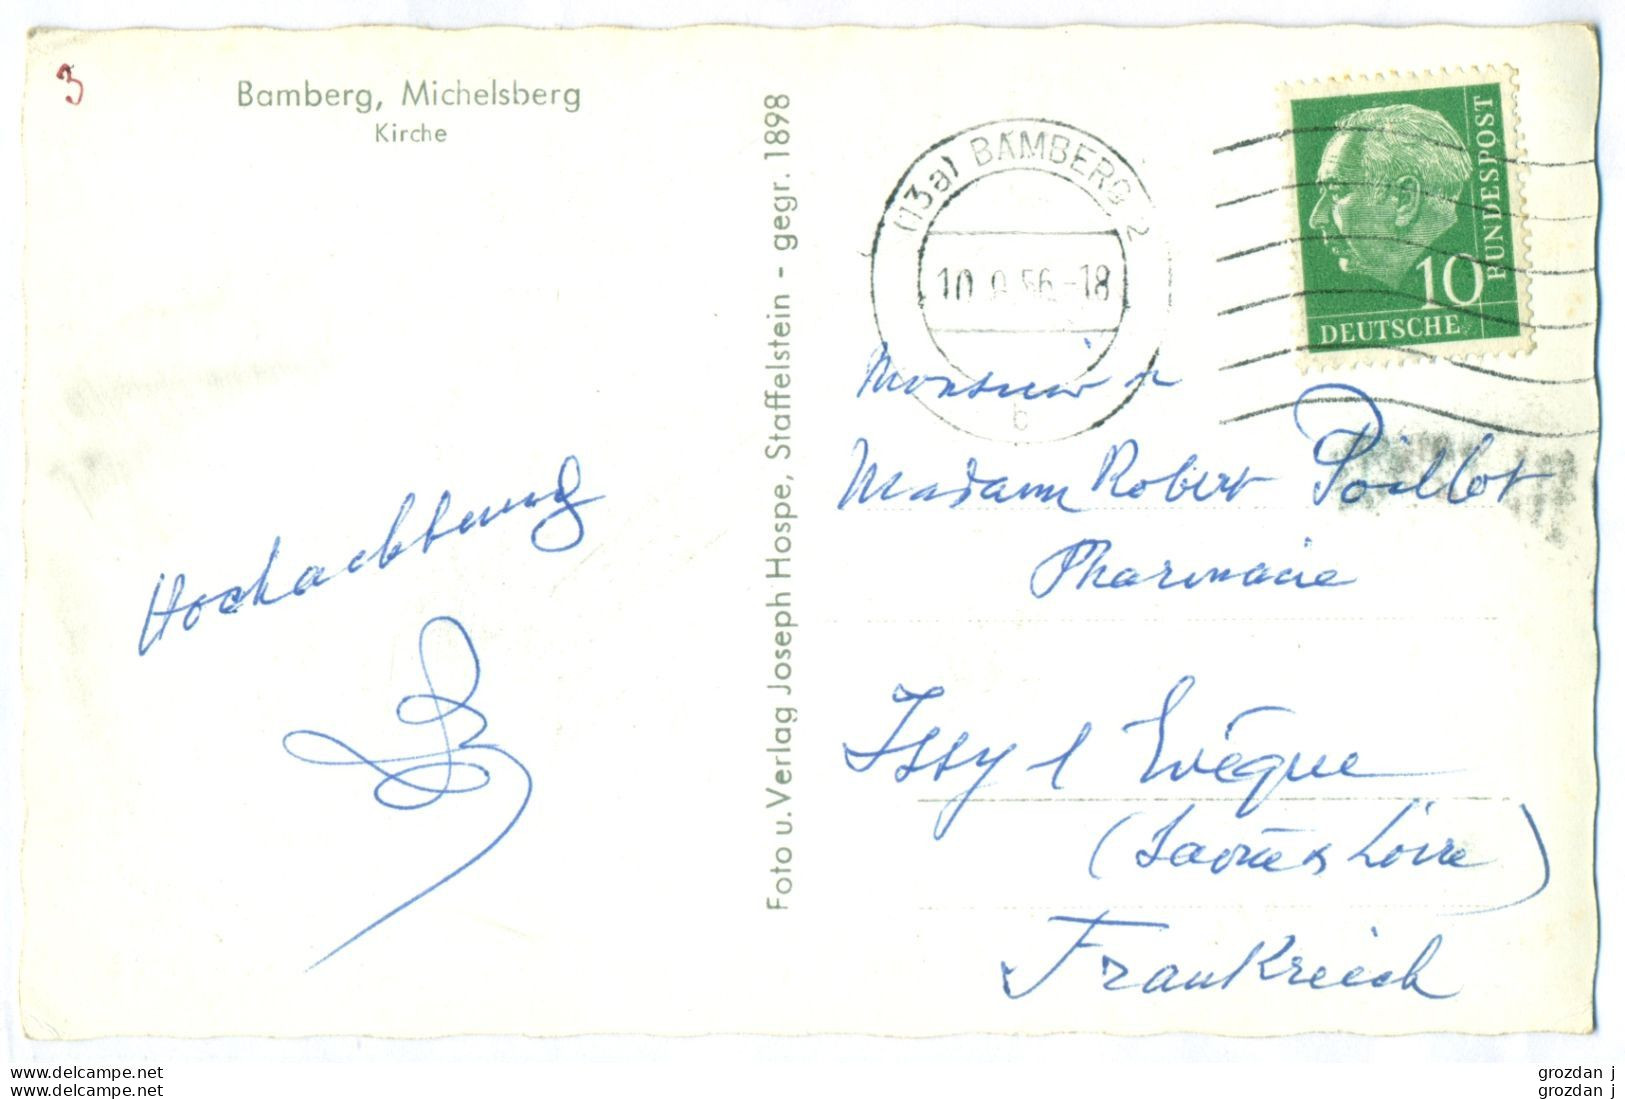 3
Bamberg, Michelsberg
Kirche
Hochachtung
Foto u. Verlag Joseph Hospe, Staffelstein - gegr. 1898
(13a) BAMBERG 2
10. 56.-18
b
BUNDESPOST
10
DEUTSCHE
Monsieur &
Madame Robert Poillot
Pharmacie
Issy l Evêque
(Saône & Loire)
Frankreich
www.delcampe.net
www.delcampe.net
grozdan j
grozdan j